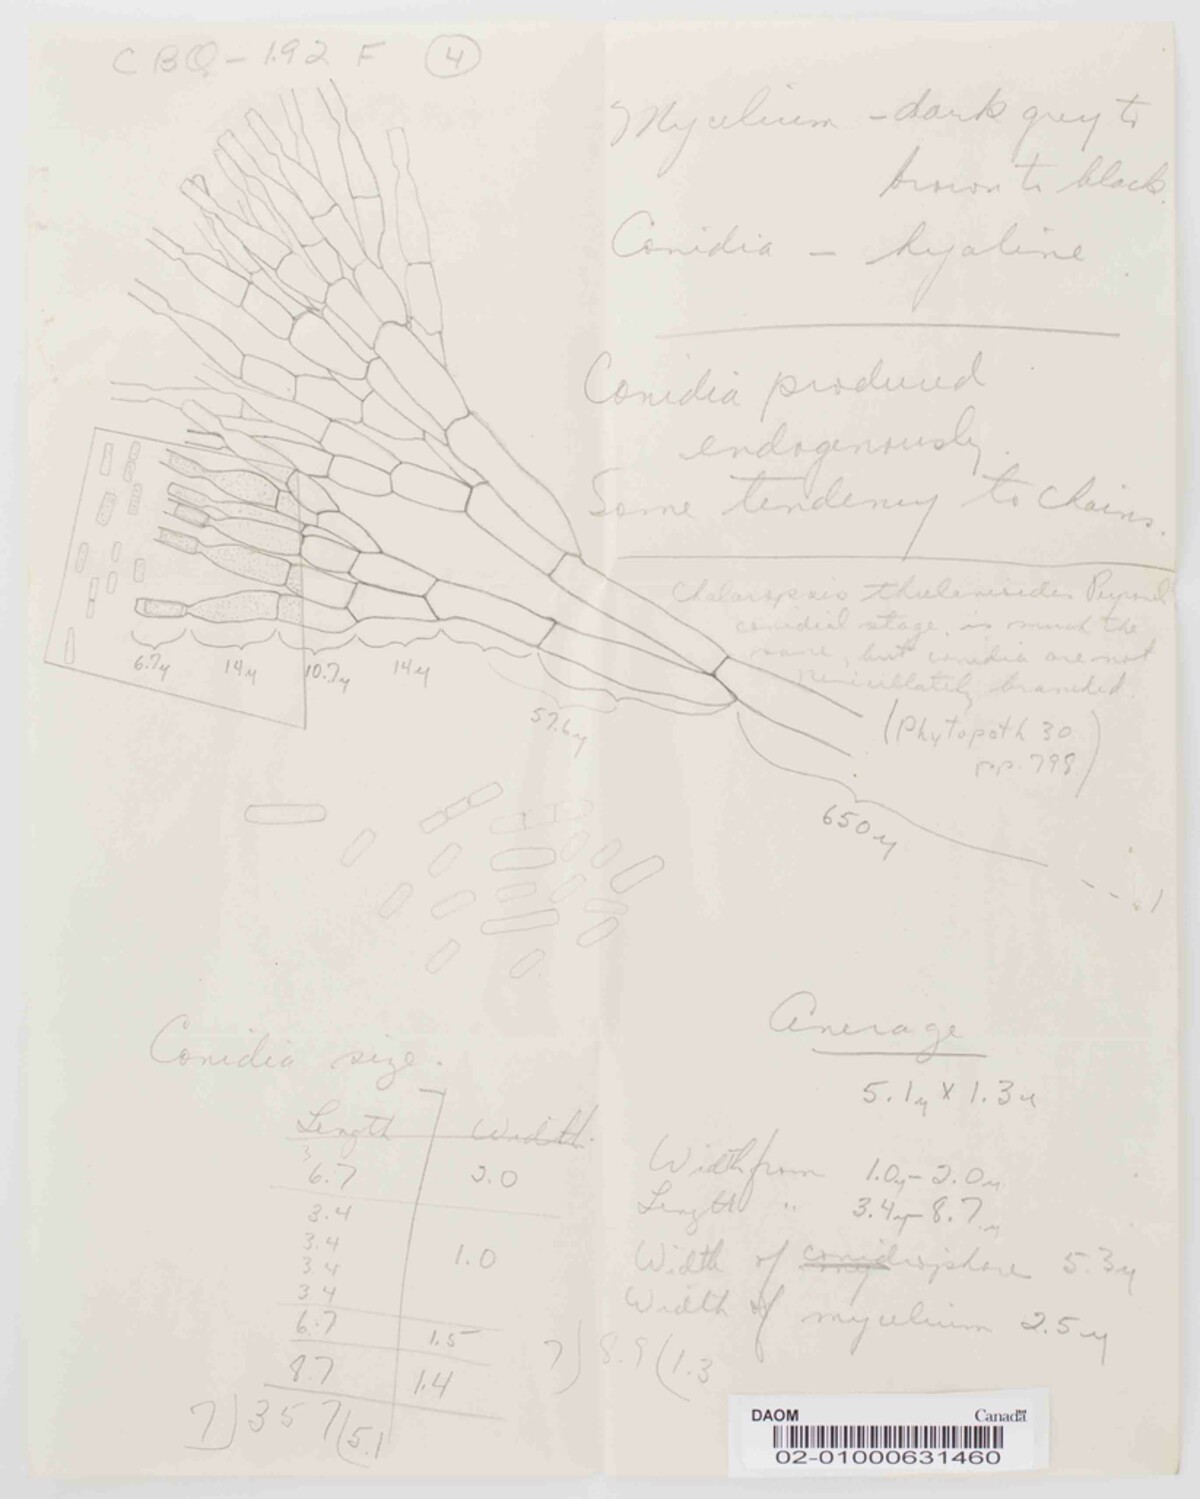 CBQ-192 F 4
Mycelium - dark grey to
brown to black.
Conidia - hyaline
Conidia produced
endogenously.
Some tendency to chains.
Chalaropsis thielavioides Peyronel
conidial stage, is much the
same, but conidia are not
penicillately branched.
(Phytopath 30
pp. 798)
6.7µ 14µ 10.7µ 14µ
57.6µ
650µ
Conidia size.
Length Width.
6.7 2.0
3.4
3.4 1.0
3.4
3.4
6.7 1.5
8.7 1.4
7)357(5.1
7)8.9(1.3
Average
5.1µ x 1.3µ
Width from 1.0µ-2.0µ
Length " 3.4µ-8.7µ
Width of conidiophore 5.3µ
Width of mycelium 2.5µ
DAOM Canada
02-01000631460